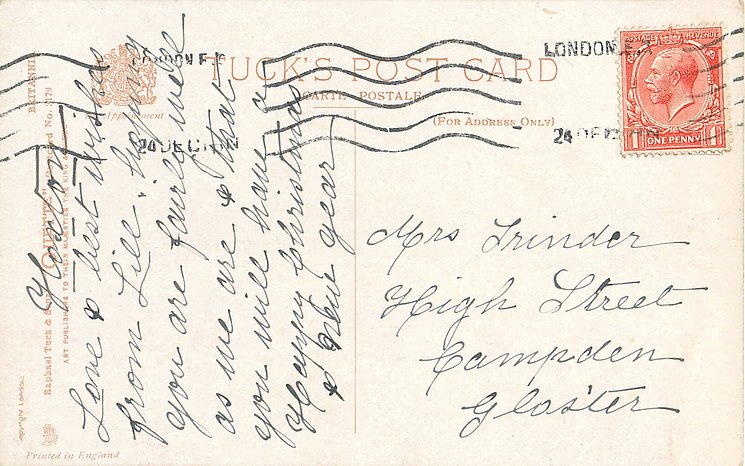 TUCK'S POST CARD
CARTE POSTALE
(FOR ADDRESS ONLY)
LONDON
24 DEC
LONDON
24 DEC
POSTAGE REVENUE
1 ONE PENNY 1
BRITANNI
Appointment
Raphael Tuck & Sons
ART PUBLISHERS TO THEIR MAJESTIES THE KING &
Printed in England
Love & best wishes
from Lill, hoping
you are fairly well
as we are & that
you will have a
Happy Christmas
& New Year
Mrs Trinder
High Street
Campden
Glos'ter